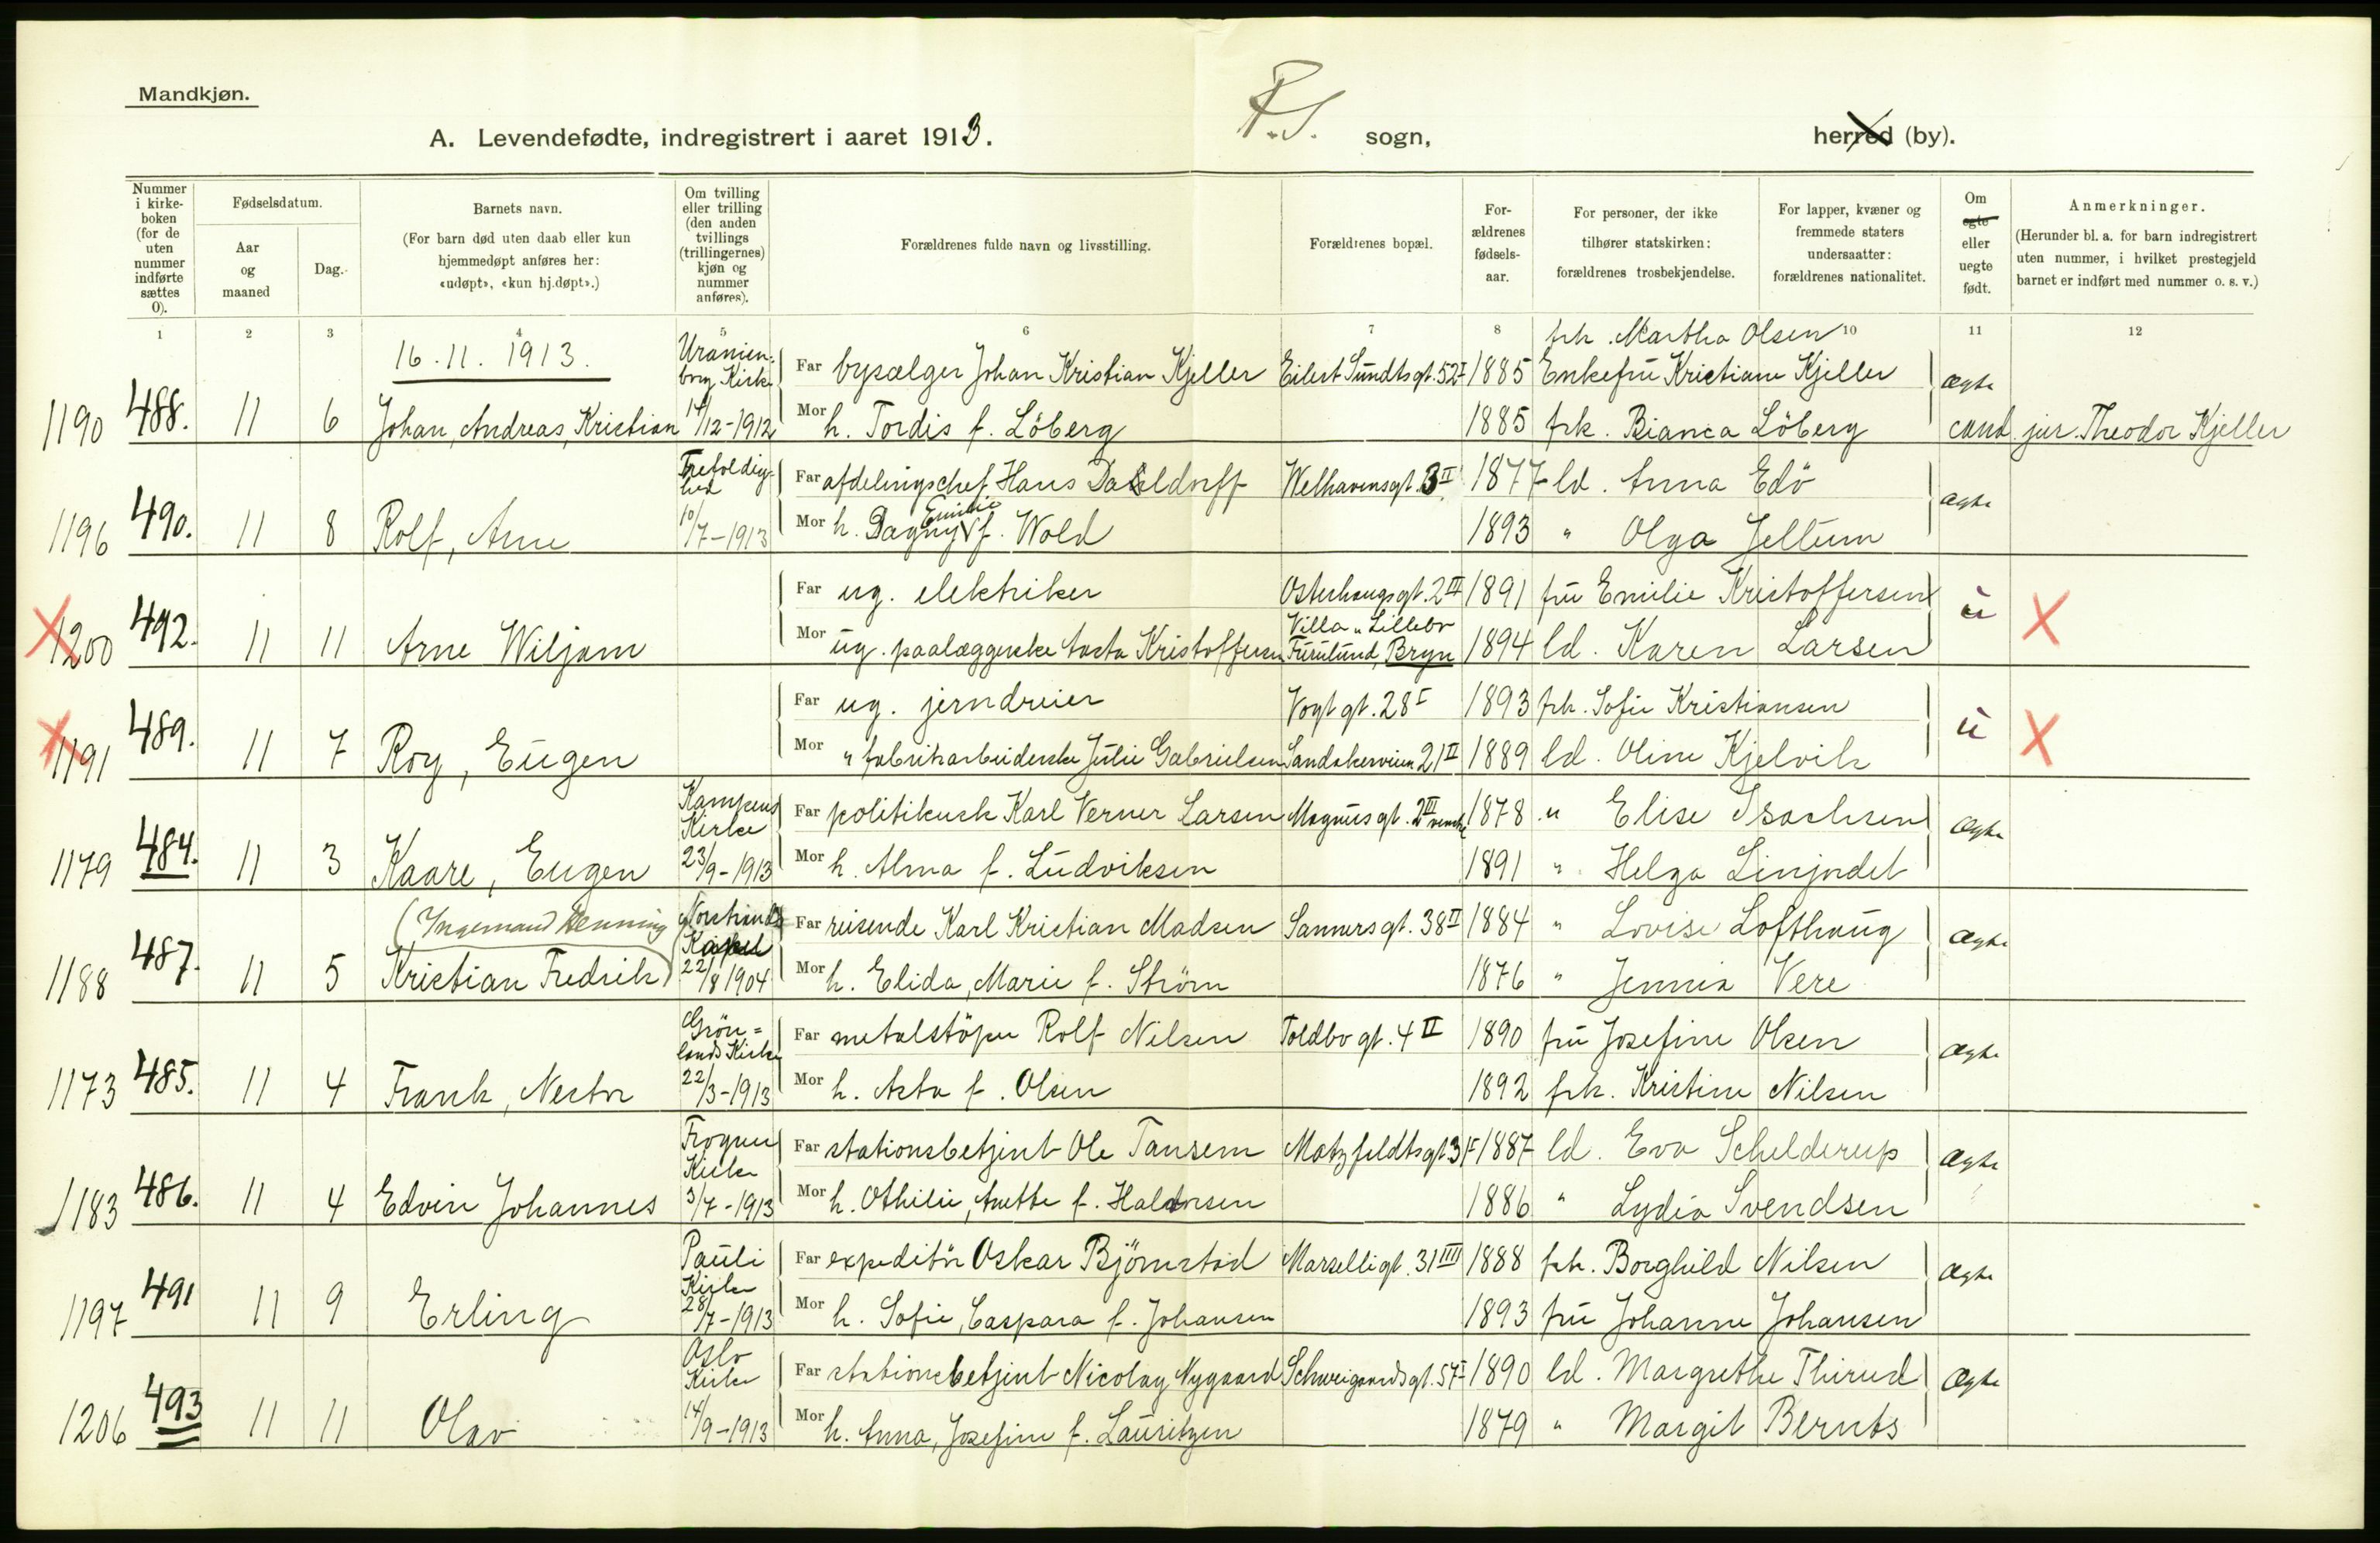 Mandkjøn.
A. Levendefødte, indregistrert i aaret 1913.
R.S. sogn,
herred (by).
Nummer i kirke-boken (for de uten nummer indførte sættes 0).
Fødselsdatum.
Aar og maaned
Dag.
Barnets navn.
(For barn død uten daab eller kun hjemmedøpt anføres her: «udøpt», «kun hj.døpt».)
Om tvilling eller trilling (den anden tvillings (trillingernes) kjøn og nummer anføres).
Forældrenes fulde navn og livsstilling.
Forældrenes bopæl.
For-ældrenes fødsels-aar.
For personer, der ikke tilhører statskirken: forældrenes trosbekjendelse.
For lapper, kvæner og fremmede staters undersaatter: forældrenes nationalitet.
Om egte eller uegte født.
Anmerkninger.
(Herunder bl. a. for barn indregistrert uten nummer, i hvilket prestegjeld barnet er indført med nummer o. s. v.)
1 2 3 4 5 6 7 8 10 11 12
16.11.1913.
Uranien-borg Kirke
frk. Martha Olsen
Far bysælger Johan Kristian Kjeller Eilert Sundtsgt. 52 I 1885 Enkefru Kristiane Kjeller ægte
1190 488. 11 6 Johan, Andreas, Kristian 14/12-1912 Mor h. Tordis f. Löberg 1885 frk. Bianca Löberg cand jur. Theodor Kjeller
Trefoldig-hed Far afdelingschef Hans Daeldorff Welhavensgt. 3 II 1877 ld. Anna Edö ægte
1196 490. 11 8 Rolf, Arne 10/7-1913 Mor h. Dagny Emilie f. Wold 1893 " Olga Jellum
Far ug. elektriker Osterhausgt. 2 II 1891 fru Emilie Kristoffersen u X
X 1200 492. 11 11 Arne Wiljam Mor ug. paalæggerske Aasta Kristoffersen Villa "Lillebo Furulund, Bryn 1894 ld. Karen Larsen
Far ug. jerndreier Vogtgt. 28 I 1893 frk. Sofie Kristiansen u X
X 1191 489. 11 7 Roy, Eugen Mor " fabrikarbeiderske Julie Gabrielsen Sandakerveien 21 II 1889 ld. Oline Kjelvik
Kampens Kirke Far politikusk Karl Verner Larsen Magnusgt. 2 III 1878 " Elise Isachsen ægte
1179 484. 11 3 Kaare, Eugen 23/9-1913 Mor h. Alma f. Ludviksen 1891 " Helga Linjordet
(Ingemand Henning Kapel Far reisende Karl Kristian Madsen Sannersgt. 38 II 1884 " Lovise Lofthaug ægte
1188 487. 11 5 Kristian Fredrik) 22/8 1904 Mor h. Elida, Marie f. Ström 1876 " Jennia Vere
Grön=lands Kirke Far metalstöper Rolf Nilsen Toldbogt. 4 II 1890 fru Josefine Olsen ægte
1173 485. 11 4 Frank, Nestor 22/3-1913 Mor h. Asta f. Olsen 1892 frk. Kristine Nilsen
Frogner Kirke Far stationsbetjent Ole Tansem Motzfeldtsgt 3 I 1887 ld. Eva Schelderup ægte
1183 486. 11 4 Edvin Johannes 3/7-1913 Mor h. Othilie, Anette f. Halvorsen 1886 " Lydia Svendsen
Pauli Kirke Far expeditör Oskar Björnstad Marselligt. 31 IIII 1888 frk. Borghild Nilsen ægte
1197 491 11 9 Erling 28/7-1913 Mor h. Sofie, Caspara f. Johansen 1893 fru Johanne Johansen
Oslo Kirke Far stationsbetjent Nicolay Nygaard Schweigaardsgt. 57 I 1890 ld. Margrethe Thirud ægte
1206 493 11 11 Olav 14/9-1913 Mor h. Anna, Josefine f. Lauritzen 1879 " Margit Bernts